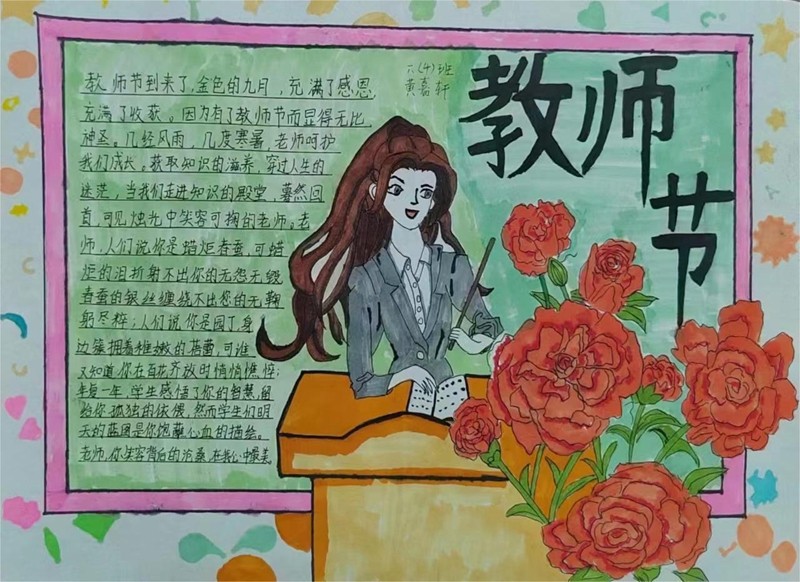 教师节
六(4)班
黄嘉轩
教师节到来了,金色的九月,充满了感恩,
充满了收获。因为有了教师节而显得无比
神圣。几经风雨,几度寒暑,老师呵护
我们成长。获取知识的滋养,穿过人生的
迷茫,当我们走进知识的殿堂,蓦然回
首,可见烛光中笑容可掬的老师。老
师,人们说你是蜡炬春蚕,可蜡
炬的泪折射不出你的无怨无毁
春蚕的银丝缠绕不出您的无鞠
躬尽粹;人们说你是园丁,身
边簇拥着稚嫩的蓓蕾,可谁
又知道,你在百花齐放时悄悄憔悴;
年复一年,学生感悟了你的智慧,留
给你孤独的依偎,然而学生们明
天的蓝图是你饱蘸心血的描绘。
老师,你笑容背后的沧桑,在我心中最美